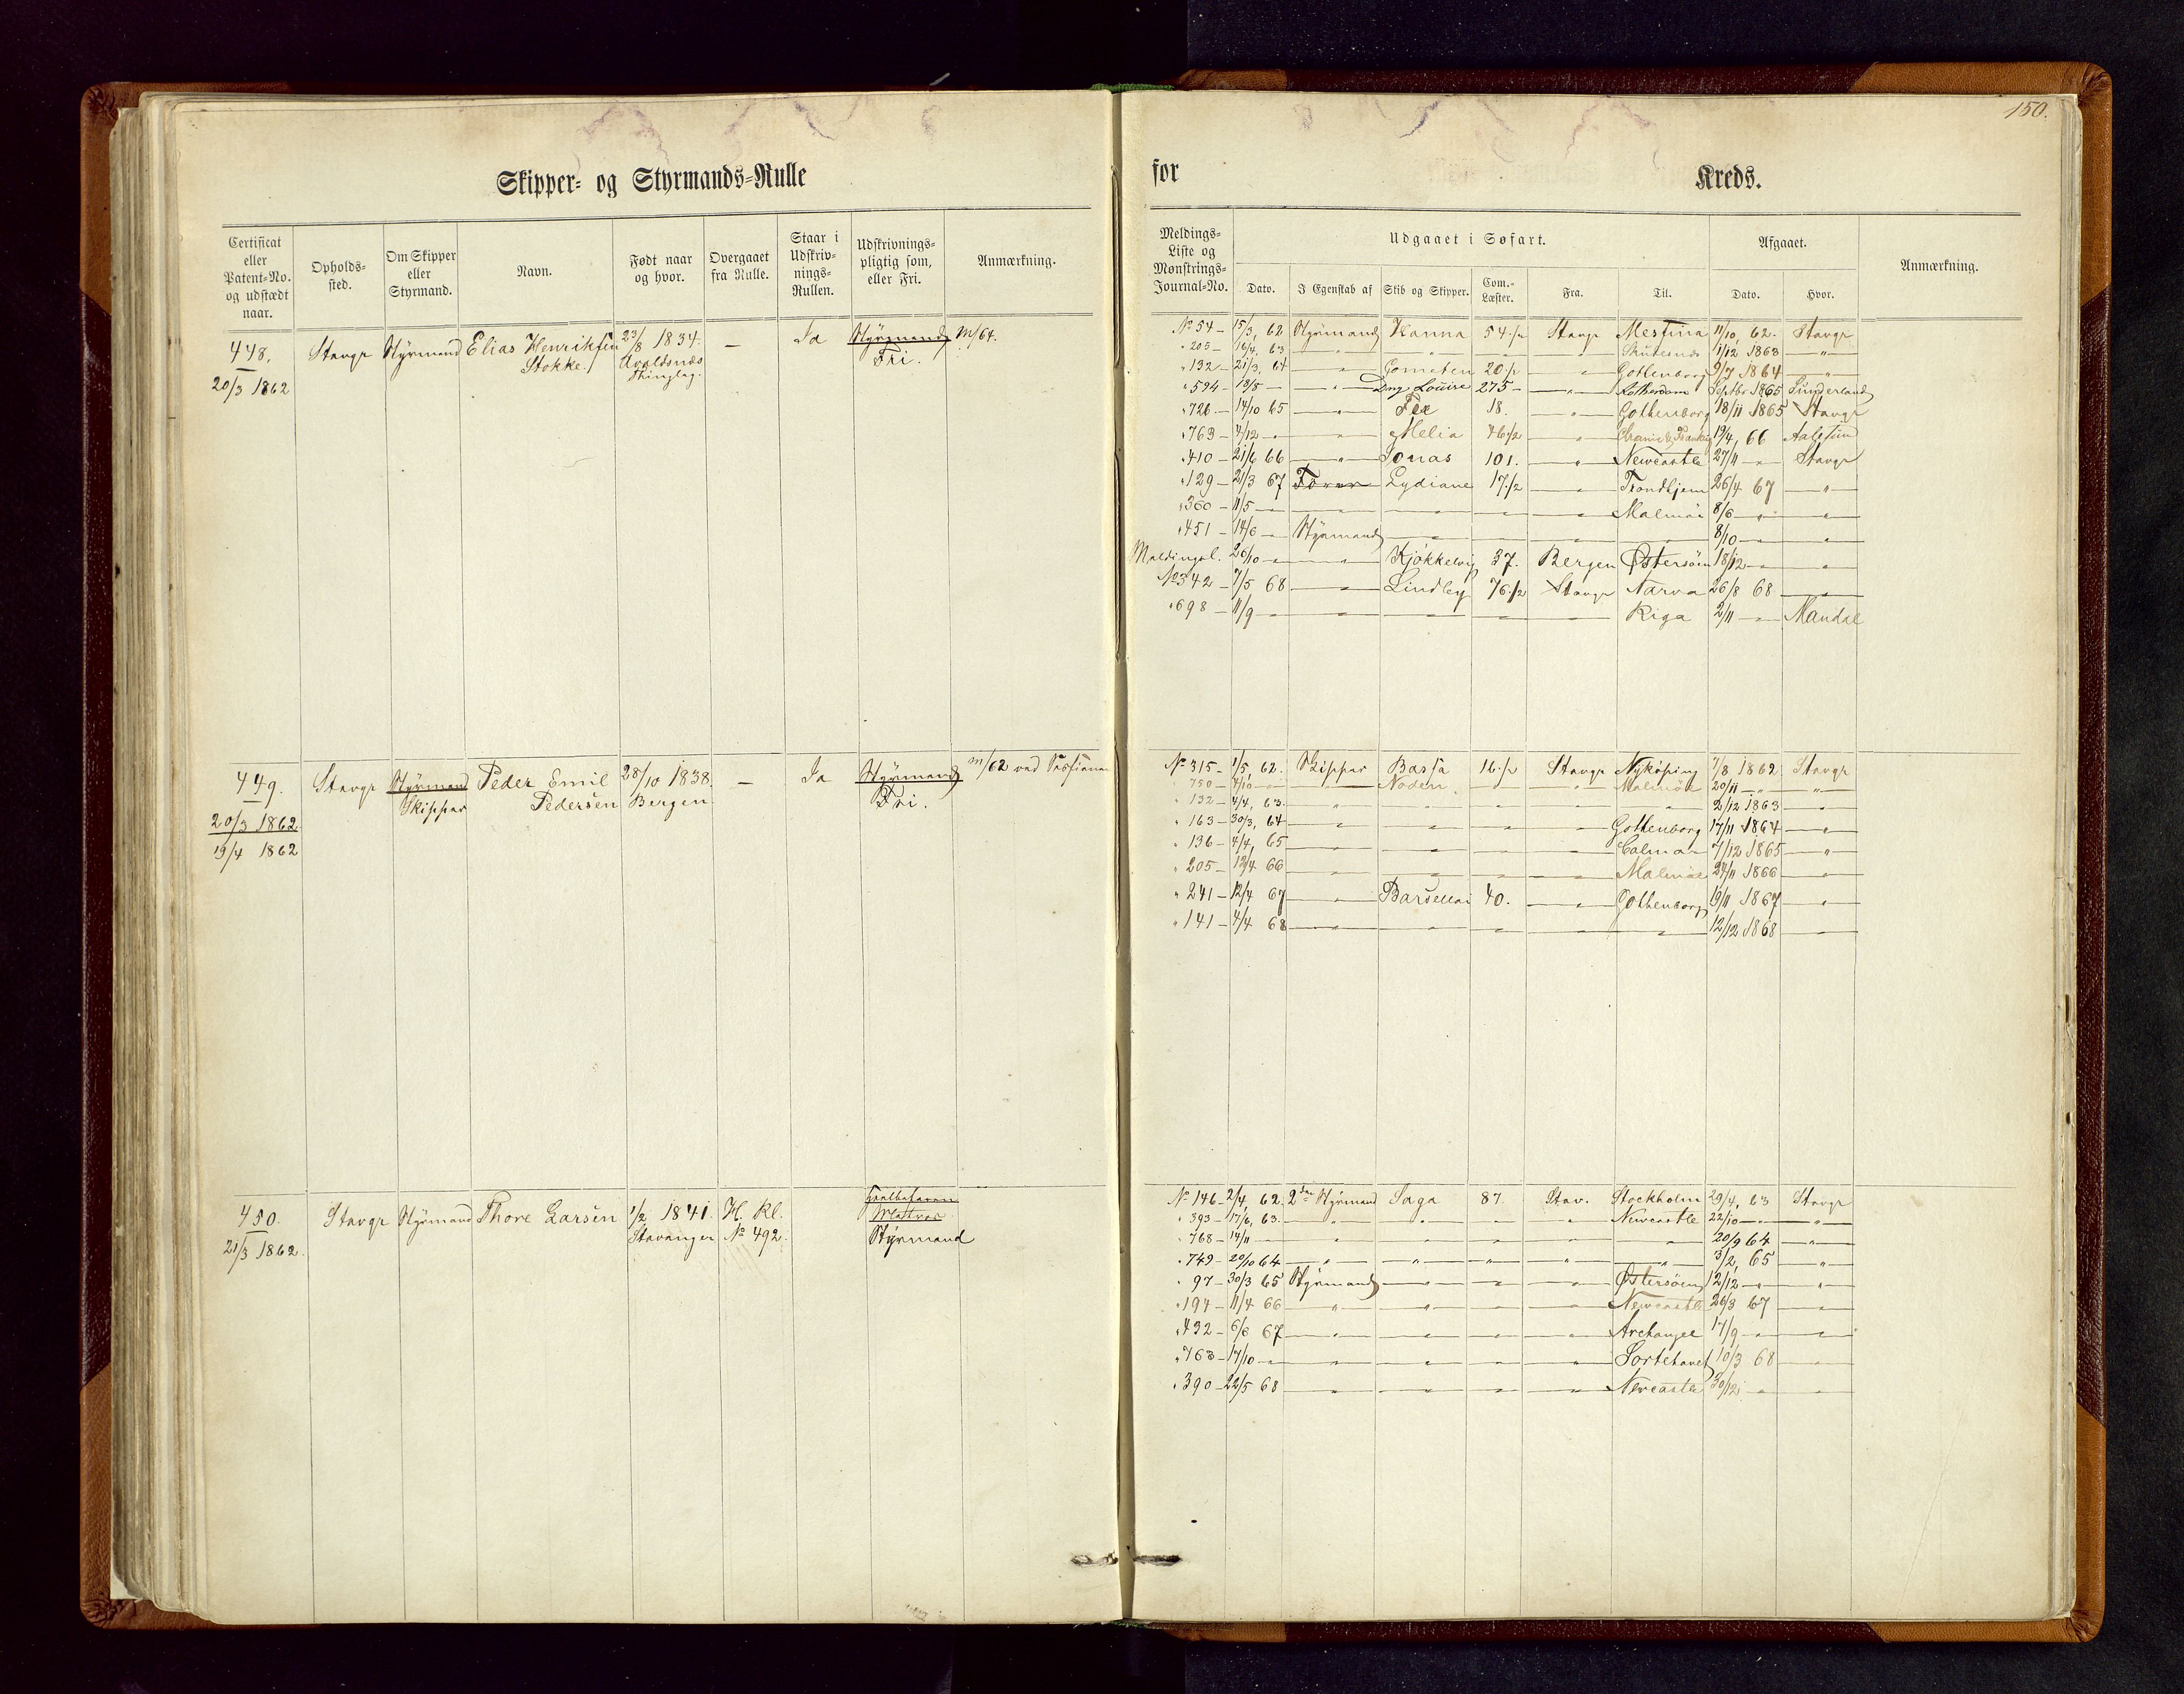 150.
Skipper- og Styrmands-Rulle
for
Kreds.
Certificat eller Patent-No. og udstædt naar.
Opholds-sted.
Om Skipper eller Styrmand.
Navn.
Født naar og hvor.
Overgaaet fra Rulle.
Staar i Udskriv-nings-Rullen.
Udskrivnings-pligtig som, eller Fri.
Anmærkning.
Meldings-Liste og Mønstrings-Journal-No.
Udgaaet i Søfart.
Dato.
I Egenskab af
Skib og Skipper.
Com.-Læster.
Fra.
Til.
Afgaaet.
Dato.
Hvor.
Anmærkning.
448. Stavgr Styrmand Elias Henriksen 23/8 1834. — Ja Styrmand m/64.
20/3 1862 Stokke. Avaldsnæs Thinglag. Fri.
No 54 — 15/3, 62 Styrmand Hanna 54 1/2 Stavgr Messina 11/10, 62. Stavgr
" 205 — 16/4, 63 — " — " " " Skudesnæs 1/12 1863 — " —
" 132 — 21/3, 64 — " — Cometen 20 1/2 " Gothenborg 9/7 1864 — " —
" 594 — 18/8 — — " — Louise 275 — " — Rotherdam Septbr 1865 Sunderland
" 726 — 14/10 65 — " — 18. — " — Gothenborg 18/11 1865 Stavgr
" 763 — 4/12 — " — " — Melia 46 1/2 — " — 19/4, 66 Aalesund
" 410 — 21/6 66 — " — Jonas 101. — " — Newcastle 27/11 — " — Stavgr
" 129 — 21/3 67 Fører Lydiane 17 1/2 — " — Trondhjem 26/4 67 — " —
" 360 — 11/5 — " — " — " — " — " — Malmöe 8/6 — " — " —
" 451 — 14/6 — " Styrmand — " — " — " — " — 8/10 — " — " —
Meldingsl. 26/10 — " — " — Kjøkkelvig 37. Bergen Østersøen 18/12 — " — " —
No 342 — 7/5 68 — " — Lindley 76 1/2 Stavgr Narva 26/8 68 — " —
" 698 — 11/9 — " — " — " — " — " — Riga 2/11 — " — Mandal
449. Stavgr Styrmand Peder Emil 28/10 1838. — Ja Styrmand m/62 ved Sessionen
20/3 1862. Skipper Pedersen Bergen Fri.
19/4 1862
No 315 — 1/5, 62. Skipper Bassa 16 1/2 Stavgr Nyköping 7/8 1862 Stavgr
" 750 — 7/10 — " — " — Noden — " — " Malmöe 20/11 — " — " —
" 132 — 4/4, 63. " " " " " 2/12 1863 — " —
" 163 — 30/3, 64 — " — " — " — " — Gothenborg 17/11 1864 — " —
" 136 — 4/4, 65 — " — " — " — " — Calmar 7/12 1865 — " —
" 205 — 12/4 66 — " — " — " — " — Malmöe 24/11 1866 — " —
" 241 — 12/4 67 — " — 40. — " — Gothenborg 19/11 1867 — " —
" 141 — 4/4 68 — " — " — " — " — " — 12/12 1868 — " —
450. Stavgr Styrmand Thore Larsen 1/2 1841. H. Rl.
21/3 1862. Stavanger No 492. Matros
Styrmand
No 146 — 2/4, 62. 2den Styrmand Saga 87. Stav. Stockholm 29/4, 63 Stavgr
" 393 — 17/6, 63. — " — " — " — " — Newcastle 22/10 — " — " —
" 768 — 14/11 — " — " — " — " — " — 20/9 64 — " —
" 749 — 20/10 64 — " — " — " — " — " — 3/2, 65 — " —
" 97 — 30/3 65 Styrmand — " — " — " — Østersøen 12/12 — " — " —
" 194 — 11/4 66 — " — " — " — " — Newcastle 26/3 67 — " —
" 432 — 6/6 67 — " — " — " — " — Archangel 17/9 — " — " —
" 763 — 17/10 — " — " — " — " — " — Sortehavet 10/3 68 — " —
" 390 — 22/5 68 — " — " — " — " — Newcastle 30/12 — " — " —